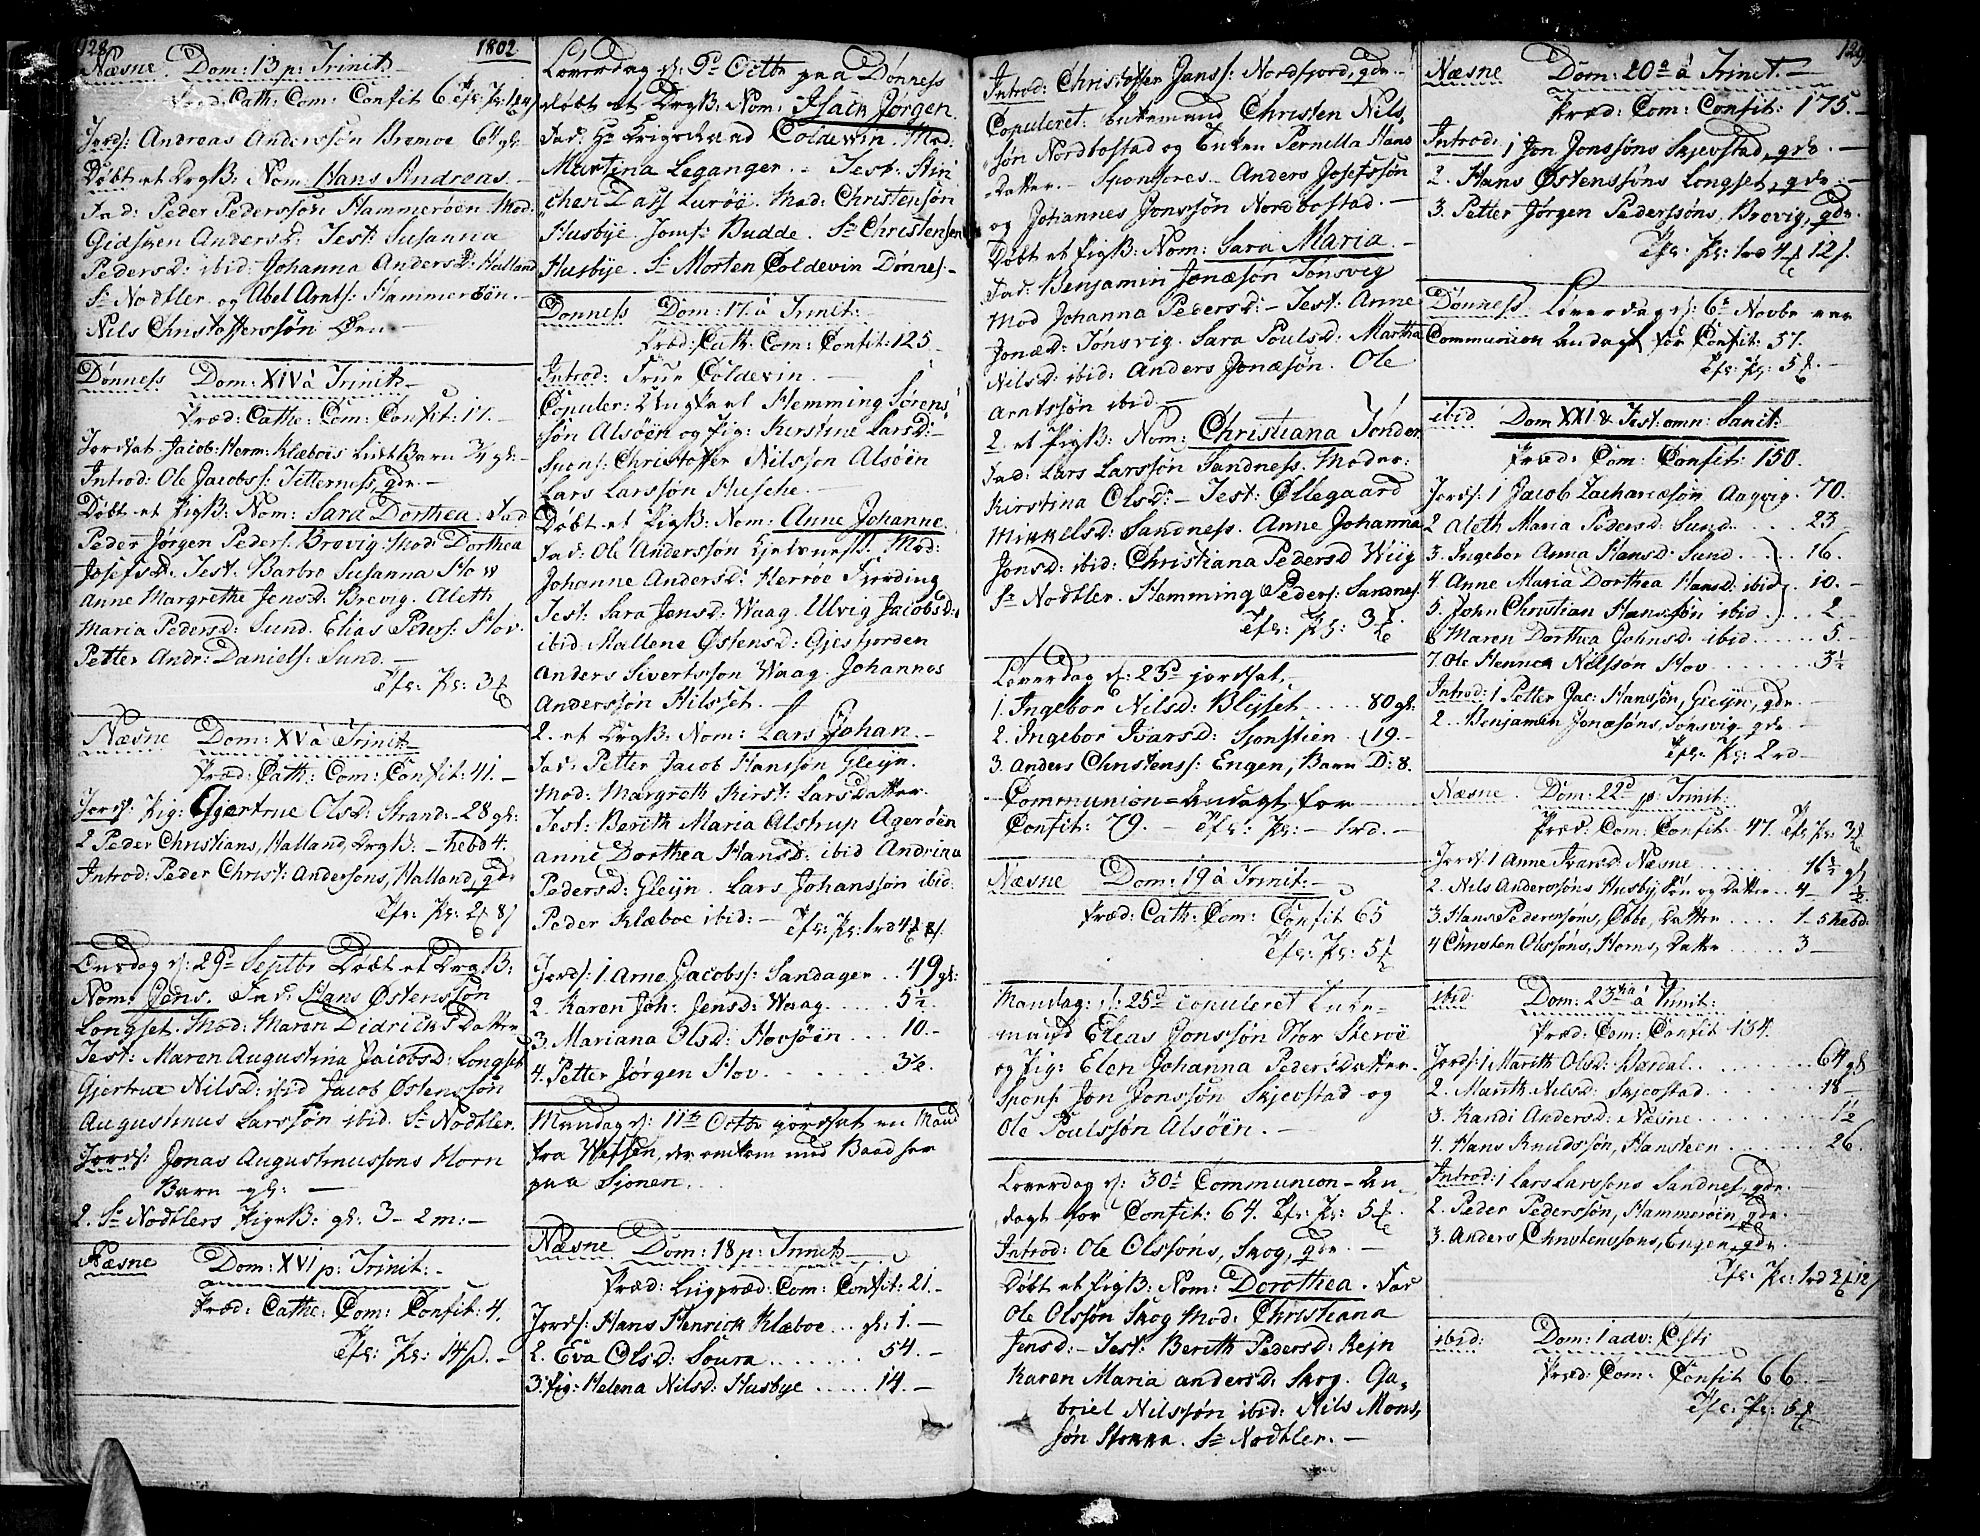 128. 1802
Næsne Dom: 13 p: Trinit:
Præd: Cath: Com: Confit 6.
Jords: Andreas Anderssøn Bremoe 64 gl:
Døbt et DrgB: Nom: Hans Andreas.
Fad: Peder Pederssøn Hammerøen. Mod:
Gidsken Andersd: Test: Susanna
Pedersd: ibid: Johanna Andersd: Halland
Sr Nodtler og Abel Arnts: Hammerøen.
Nils Christofferssøn Øen
Dønness Dom: XIV à Trinit:
Præd: Cathe: Com: Confit: 17.
Jordsat Jacob: Herm: Klæboes Barn 3/4 gl:
Introd: Ole Jacobss: Titterness, gdr.
Døbt et PigB: Nom: Sara Dorthea. Fad
Peder Jørgen Peders: Brevig Mod: Dorthea
Josefsd: Test: Barbro Susanna Hov
Anne Margrethe Jensd: Brevig. Aleth
Maria Pedersd: Sund. Elias Peders: Hov.
Petter Andr: Daniels: Sund.
Efr: Kr: 3
Næsne Dom: XV à Trinit:
Præd: Cath: Com: Confit: 41.
Jords: Pig: Gjertrue Olsd: Strand. 28 gl:
2 Peder Christians, Halland, DrgB: hebd 4.
Introd: Peder Christ: Andersons, Halland, gdr
Efr: Kr: 2 8
Onsdag d: 29de Septbr Døbt et DrgB:
Nom: Jens. Fad: Hans Østenssøn
Longset. Mod: Maren Didricks Datter
Test: Maren Augustina Jacobsd: Longset
Gjertrue Nilsd: ibid Jacob Østenssøn
Augustinus Larssøn ibid. Sr Nodtler.
Jords: Jonas Augustinussøns Horn
Barn gl:
2. Sr Nodtlers PigeB: gl: 3 - 2 m:
Næsne Dom: XVI p: Trinit:
Præd: Cathe: Com: Confit: 4.
Efr: Kr: 14
Løverdag d: 9de Octbr paa Dønness
døbt et DrgB: Nom: Isach Jørgen.
Fad: Hr Krigsraad Coldevin Mod:
Martina Leganger. Test: Hin
chen Dass Lurøe. Mad: Christensøn
Husbye. Jomf: Budde. Sr Christensen
Husbye. Sr Morten Coldevin Dønnes.
Dønness Dom: 17. à Trinit:
Præd: Cath: Com: Confit: 125
Introd: Frue Coldevin.
Copuler: Ungkarl Hemming Sørens
søn Alsøen og Pig: Kerstine Larsd:
Spons: Christoffer Nilsson Alsøen
Lars Larssøn Husche.
Døbt et PigB: Nom: Anne Johanne.
Fad: Ole Anderssøn Mod:
Johanne Andersd: Herrøe
Test: Sara Jonsd: Waag. Ulvig Jacobsd:
ibid. Mallene Østensd: Gjesfjorden
Anders Sivertsson Waag. Johannes
Anderssøn Hilsset.
2. et DrgB: Nom: Lars Johan.
Fad: Petter Jacob Hanssøn Gleyn.
Mod: Margreth Kirst: Larsdatter
Test: Berith Maria Alstrup Agerøen
Anne Dorthea Hansd: ibid Andrina
Pedersd: Gleyn. Lars Johanssøn ibid:
Peder Klæboe ibid: Efr: Kr: 1 rd 4 8.
Jords: 1 Arne Jacobss: Sandager .. 49 gl:
2. Karen Joh: Jensd: Waag .... 5½.
3 Mariana Olsd: Hovsøen ... 10.
4. Petter Jørgen Hov ...... 3½.
Mandag d: 11te Octbr jordsat en Mand
fra Wefsen, der omkom med Baad her
paa Sjonen.
Næsne Dom: 18 p: Trinit:
Præd: Liigpræd: Com: Confit: 21.
Jords: Hans Henrick Klæboe ... gl: 1.
2. Eva Olsd: Soura ....... 54.
3. Pig: Helena Nilsd: Husbye ..... 14.
Introd: Christoffer Janss: Nordfjord, gdr.
Copuleret: Enkemand Christen Nils
søn Nordbostad og Enken Pernilla Hans
Datter. Sponsores Anders Josefssøn
og Johannes Jonssøn Nordbostad.
Døbt et PigB: Nom: Sara Maria.
Fad: Benjamin Jonæsøn Tonsvig
Mod Johanna Pedersd: Test: Anne
Jonæd: Tonsvig. Sara Poulsd: Martha
Nilsd: ibid: Anders Jonæsøn. Ole
Arntssøn ibid
2. et PigB: Nom: Christiana Tønder
Fad: Lars Larssøn Sandness. Moder:
Kirstina Olsd: Test: Øllegaard
Mikkelsd: Sandness. Anne Johanna
Jonsd: ibid: Christiana Pedersd Wiig
Sr Nodtler. Hemming Peders: Sandnes.
Efr: Kr: 3
Løverdag d: 23d jordsat.
1. Ingebor Nilsd: Blysset .... 80 gl:
2. Ingebor Ivarsd: Sjonstien . 19.
3. Anders Christenss: Engen, Barn D: 8.
Communion=Andagt for
Confit: 79. Efr: Kr: 1 rd.
Næsne Dom: 19 à Trinit:
Præd: Cath: Com: Confit 65
Efr: Kr: 5
Mandag: d: 25d copuleret Enke=
mand Eleas Jonssøn Stor Sterøe
og Pig: Elen Johanna Peders Datter.
Spons: Jon Jonssøn Skjevstad og
Ole Poulssøn Alsøen.
Løverdag d: 30te Communion=An
dagt for Confit: 64. Efr: Kr: 5
Introd: Ole Olssøns, Skog, gdr.
Døbt et PigB: Nom: Dorothea. Far
Ole Olssøn Skog Mod: Christiana
Jensd: Test: Berith Pedersd: Rejn
Karen Maria Andersd Skog. Ga
briel Nilssøn ibid: Nils Mons
søn Stokka. Sr Nodtler.
129
Næsne Dom: 20 à Trinit.
Præd: Com: Confit: 175.
Introd: 1 Jon Jonssøns Skjevstad, gdr.
2. Hans Østenssøns Longset, gdr.
3. Petter Jørgen Pederssøns, Brevig, gdr.
Efr: Kr: 1 rd 4 12
Dønness Løverdag d: 6te Novbr var
Communion Andagt for Confit: 57.
Efr: Kr: 5
ibid Dom XXI & Fest: omn: Sanct:
Præd: Com: Confit: 150.
Jords: 1 Jacob Zachariæsøn Aagvig. 70.
2 Aleth Maria Pedersd: Sund. ... 23
3. Ingebor Anna Hansd: Sund .. 16.
4. Anne Maria Dorthea Hansd: ibid . 10.
5. John Christian Hanssøn ibid . 2
6 Maren Dorthea Johnsd: ibid ..... 5.
7. Ole Henrick Nilssøn Hov ....... 3½
Introd: 1 Petter Jac: Hanssøn, Gleyn, gdr.
2. Benjamin Jonæsøns, Tonsvig gdr
Efr: Kr: 2 rd
Næsne Dom: 22d p: Trinit:
Præd: Com: Confit: 47. Efr Kr: 3
Jords: 1 Anne Ivarsd: Næsne ...... 46½ gl
2. Nils Anderssøns Husby Søn og Datter .. 4 ½
3. Hans Pederssøns, Øbbe, Datter .... 1 5 hebd.
4 Christen Olssøns, Horns, Datter ..... 3
ibid Dom: 23tia à Trinit:
Præd: Com: Confit 134.
Jords: 1 Marith Olsd: ..... 64 gl
2. Marith Nilsd: Skjevstad ....... 18
3. Randi Andersd: Næsne ......... 1½
4. Hans Knudssøn, Hansteen ....... 26.
Introd: 1 Lars Larssøns Sandnes, gdr.
2. Peder Pederssøn, Hammerøen, gdr.
3. Anders, Christenssøns, Engen, gdr
Efr: Kr: 1 rd 3 12
ibid: Dom: 1 adv: Csti
Præd: Com: Confit 66
Efr: Kr: 5